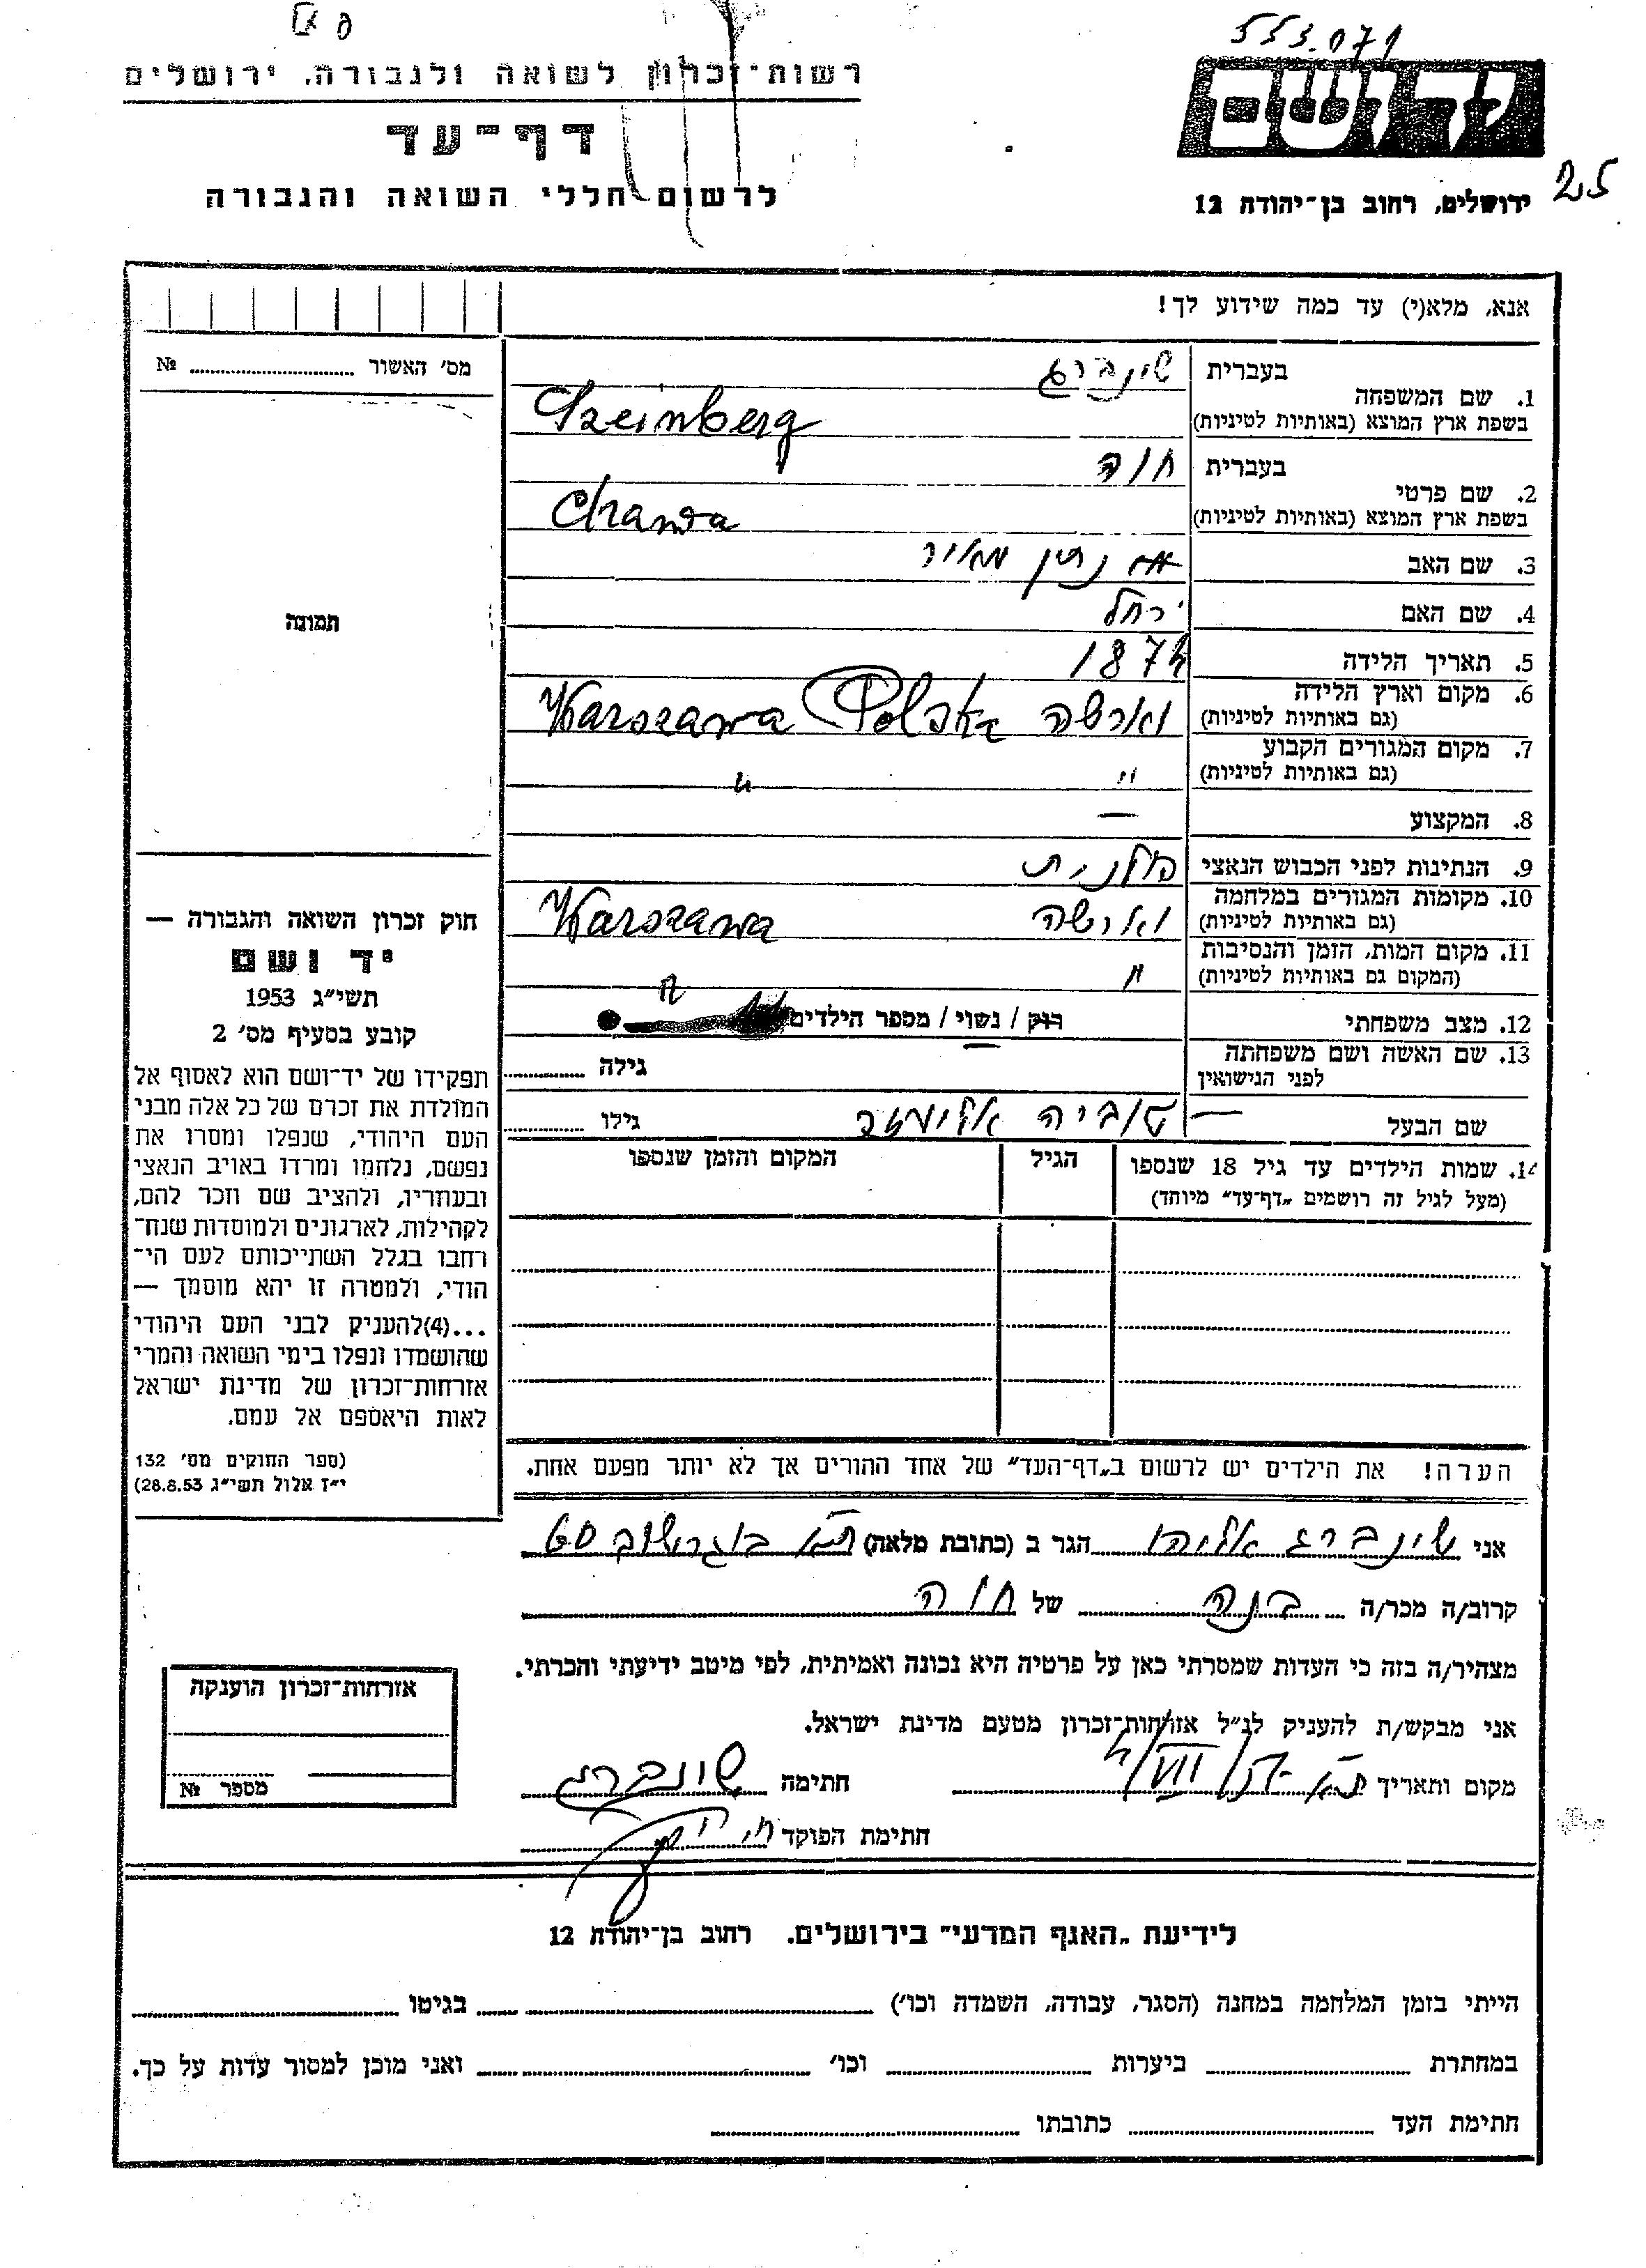 553.071
רשות־זכרון לשואה ולגבורה, ירושלים
דף־עד
לרשום חללי השואה והגבורה
ידושם
ירושלים, רחוב בן־יהודה 12
25
אנא, מלא(י) עד כמה שידוע לך!
מס׳ האשור № 
תמונה
חוק זכרון השואה והגבורה —
יד ושם
תשי״ג 1953
קובע בסעיף מס׳ 2
תפקידו של יד־ושם הוא לאסוף אל
המולדת את זכרם של כל אלה מבני
העם היהודי, שנפלו ומסרו את
נפשם, נלחמו ומרדו באויב הנאצי
ובעוזריו, ולהציב שם וזכר להם,
לקהילות, לארגונים ולמוסדות שנח־
רחבו בגלל השתייכותם לעם הי־
הודי, ולמטרה זו יהא מוסמך —
...(4)להעניק לבני העם היהודי
שהושמדו ונפלו בימי השואה והמרי
אזרחות־זכרון של מדינת ישראל
לאות היאספם אל עמם.
(ספר החוקים מס׳ 132
י״ז אלול תשי״ג 28.8.53)
בעברית שינברג
1. שם המשפחה
בשפת ארץ המוצא (באותיות לטיניות) Szeinberg
בעברית חוה
2. שם פרטי
בשפת ארץ המוצא (באותיות לטיניות) Chawa
3. שם האב נתן מאיר
4. שם האם רחל
5. תאריך הלידה 1874
6. מקום וארץ הלידה
(גם באותיות לטיניות) וארשה Warszawa Polska
7. מקום המגורים הקבוע
(גם באותיות לטיניות) " "
8. המקצוע —
9. הנתינות לפני הכבוש הנאצי פולנית
10. מקומות המגורים במלחמה
(גם באותיות לטיניות) וארשה Warszawa
11. מקום המות, הזמן והנסיבות
(המקום גם באותיות לטיניות) " "
12. מצב משפחתי רוק / נשוי / מספר הילדים
13. שם האשה ושם משפחתה
לפני הנישואין — גילה
שם הבעל — טוביה גילו
14. שמות הילדים עד גיל 18 שנספו הגיל המקום והזמן שנספו
(מעל לגיל זה רושמים „דף־עד״ מיוחד)
הערה! את הילדים יש לרשום ב„דף־העד״ של אחד ההורים אך לא יותר מפעם אחת.
אני שינברג אליהו הגר ב (כתובת מלאה) ת״א בוגרשוב
קרוב/ה מכר/ה בנה של חוה
מצהיר/ה בזה כי העדות שמסרתי כאן על פרטיה היא נכונה ואמיתית, לפי מיטב ידיעתי והכרתי.
אני מבקש/ת להעניק לנ״ל אזרחות־זכרון מטעם מדינת ישראל.
מקום ותאריך ת״א חתימה שינברג
חתימת הפוקד
אזרחות־זכרון הוענקה
מספר №
לידיעת „האגף המדעי״ בירושלים, רחוב בן־יהודה 12
הייתי בזמן המלחמה במחנה (הסגר, עבודה, השמדה וכו׳) בגיטו
במחתרת ביערות וכו׳ ואני מוכן למסור עדות על כך.
חתימת העד כתובתו